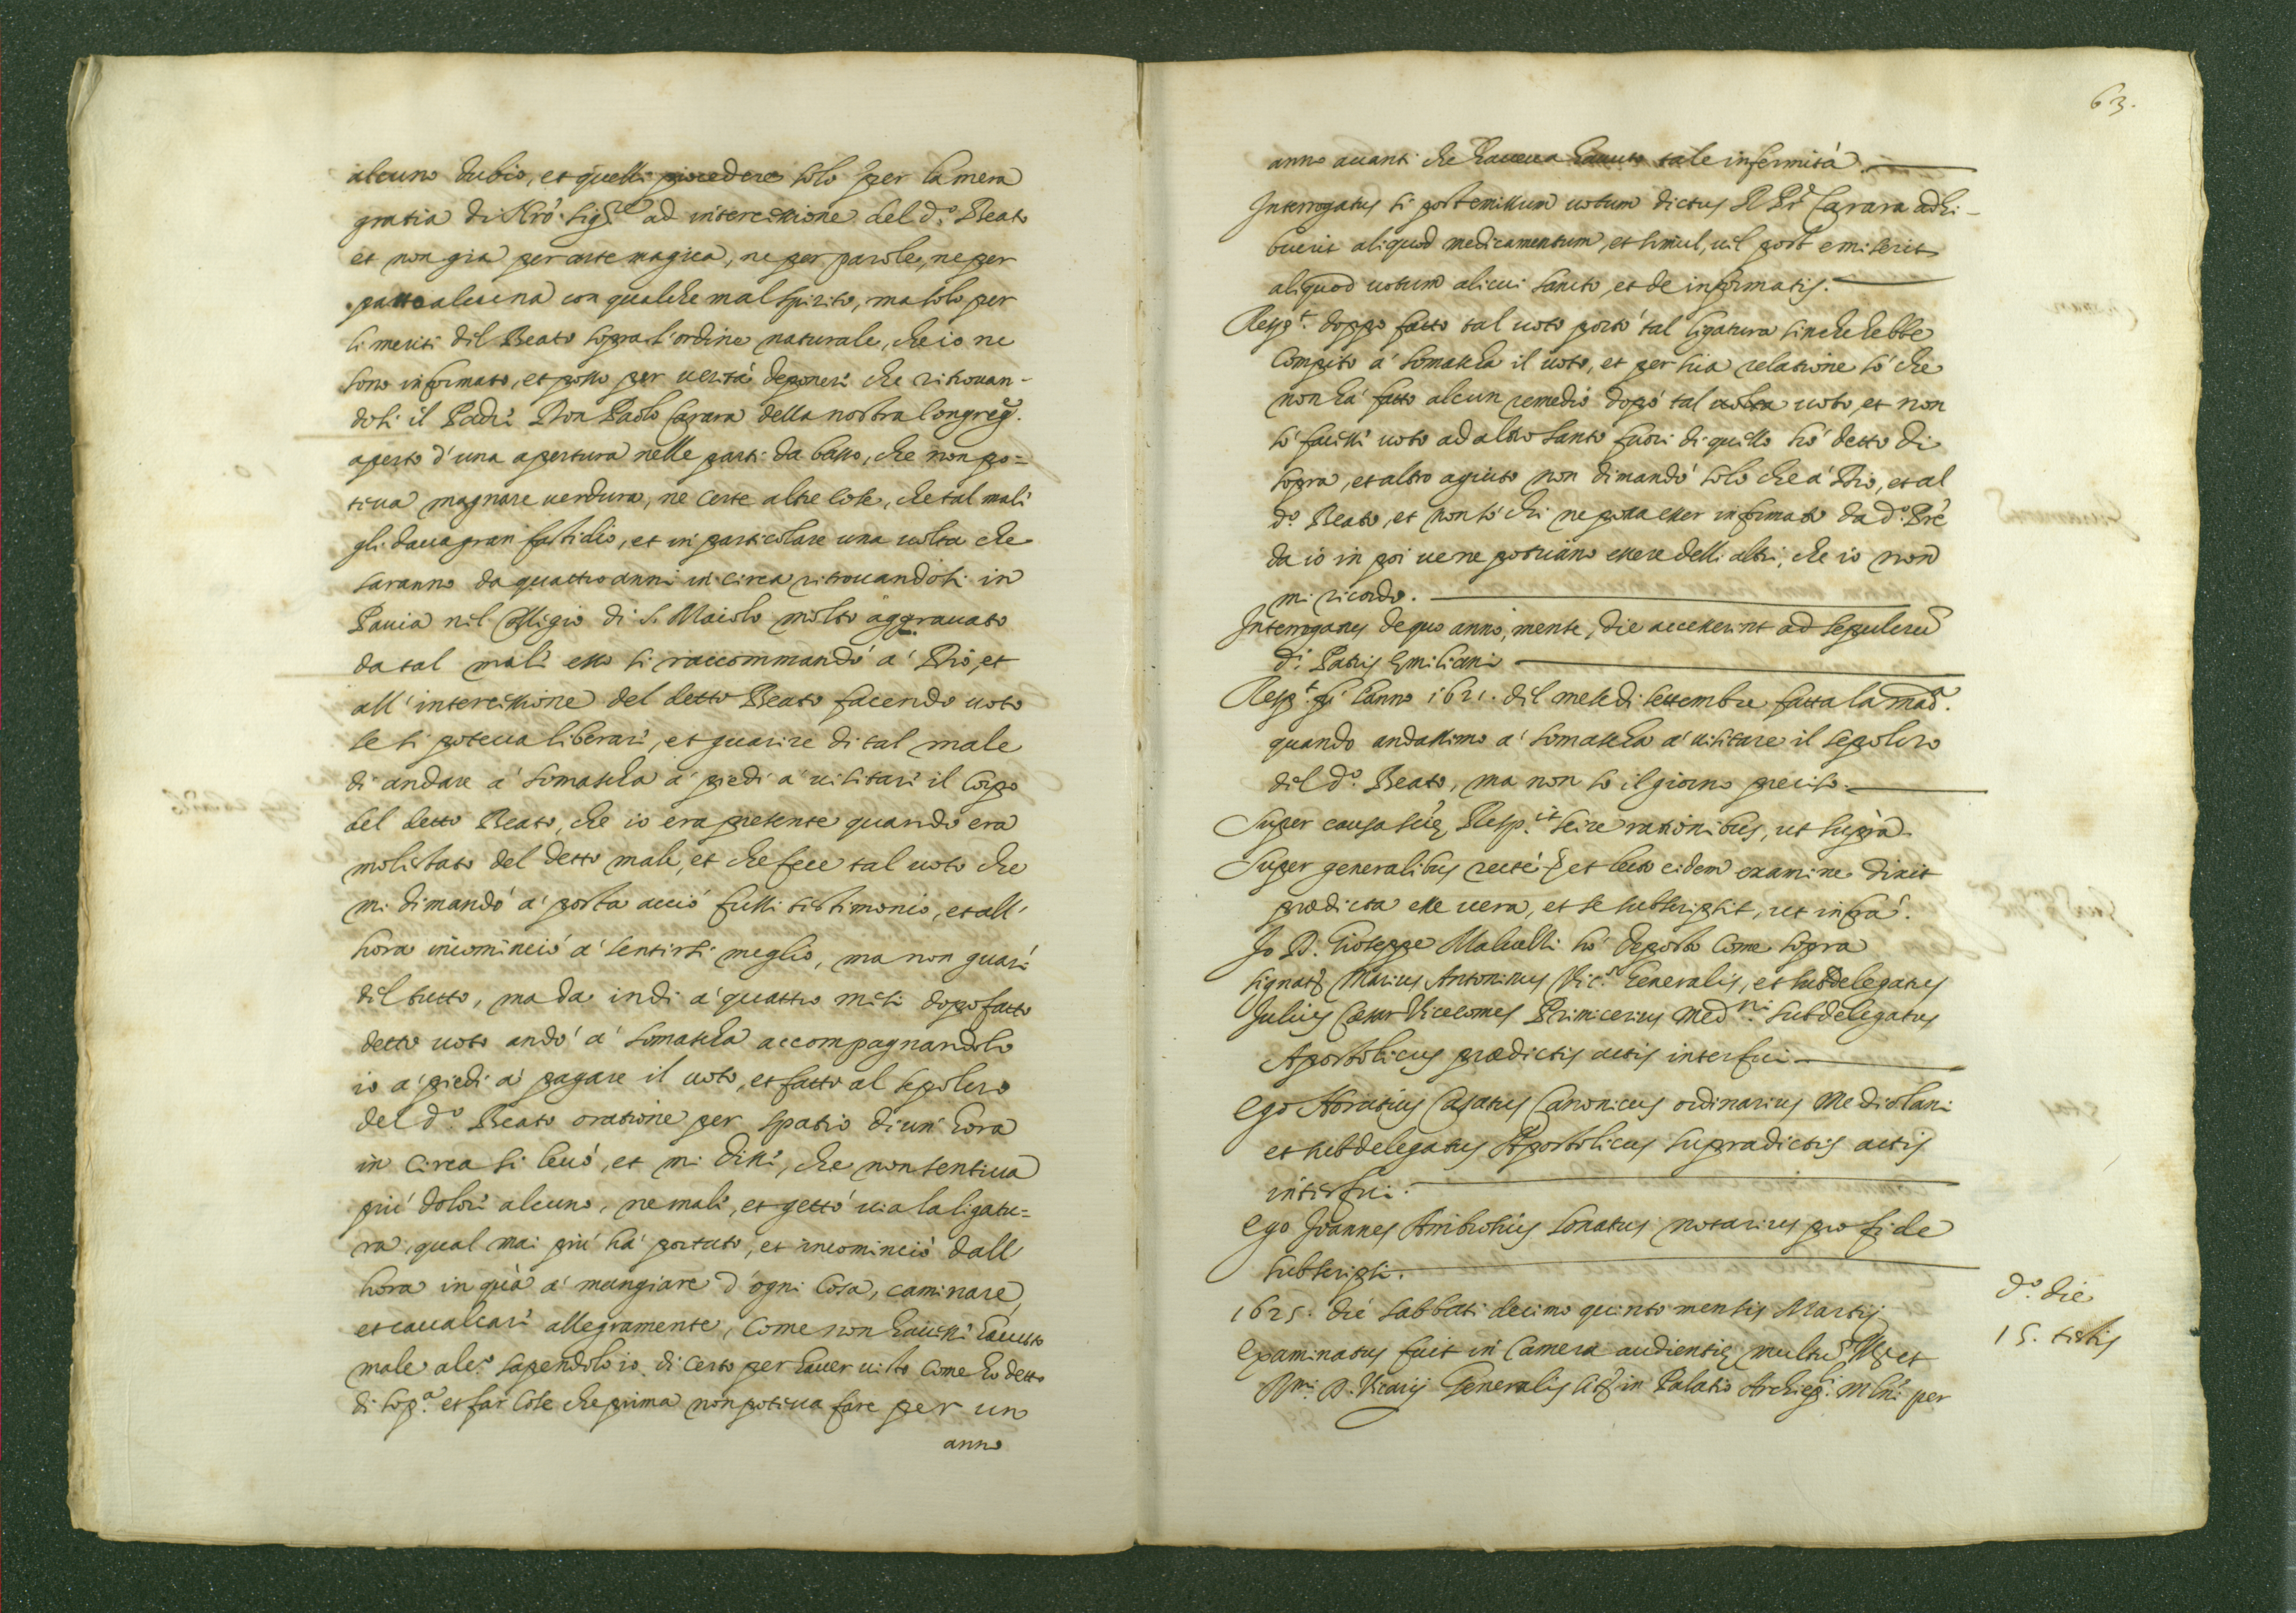 alcuno dubio, et quelli procedere solo per la mera
gratia di Nro. Sig.re ad intercessione del d.o Beato
et non gia per arte magica, ne per parole, ne per
patto alcuna con qualche mal spirito, ma solo per
li meriti dil Beato sopra l'ordine naturale, che io ne
sono informato, et posso per verità deponeri che ritrovan-
dosi il Padri Don Paolo Carara della nostra Congreg.
aperto d'una apertura nelle parti da basso, che non po=
teva magnare verdura, ne certe altre cose, che tal mali
gli dava gran fastidio, et in particolare una volta che
saranno da quattro anni in circa ritrovandosi in
Pavia nel Colligio di S. Maiolo molto aggravato
da tal mali esso si raccommandò a' Dio, et
all'intercessione del detto Beato facendo voto
se si poteva liberari, et guarire di tal male
di andare a' Somascha a' piedi a' visitari il Corpo
del detto Beato, che io era presente quando era
molestato del detto male, et che fece tal voto che
mi dimandò a' posta acciò fussi testimonio, et all'
hora incominciò a' sentirsi meglio, ma non guarì
dil tutto, ma da indi a' quattro mesi dopo fatto
detto voto andò a' Somascha accompagnandolo
io a' piedi a' pagare il voto, et fatto al sepolcro
del d.o Beato oratione per spatio di un' hora
in circa si levò, et mi dissi, che non sentiva
più dolori alcuno, ne mali, et gettò via la ligatu=
ra, qual mai più hà portato, et incominciò dall'
hora in quà a' mangiare d'ogni cosa, caminare,
et cavalcari allegramente, come non havessi havuto
male alc.o sapendolo io di certo per haver visto come ho detto
di sop.a et far cose che prima non poteva fare per un
anno
63.
anno avanti che haveva havuto tale infermità.
Interrogatus si post emissum votum dictus R. Pr. Carara adhi-
buerit aliquod medicamentum, et simul, vel post emiserit
aliquod votum alicui Sancto, et de informatis.
Resp.t doppo fatto tal voto portò tal ligatura sinche hebbe
compito a' Somascha il voto, et per sua relatione sò che
non hà fatto alcun remedio dopò tal volta voto, et non
sò facessi voto ad altro Santo fuori di quello hò detto di
sopra, et altro agiuto non dimandò solo che a' Dio, et al
d.o Beato, et non sò chi ne possa esser informato da d.o Pre
da io in poi ve ne potriano essere delli altri, che io non
mi ricordo.
Interrogatus de quo anno, mense, die accesserint ad sepulcru
d.i Patris Emiliani
Resp.t fù l'anno 1621. dil mese di settembre fatta la mad.
quando andassimo a' Somascha a' visitare il sepolcro
dil d.o Beato, ma non so il giorno preciso.
Super causa scię Resp.it scire rationibus, ut suprà
Super generalibus rectè et lecto eidem examine dixit
prædicta esse vera, et se subscripsit, ut infrà.
Io D. Gioseppe Malvelli hò deposto come sopra
signat Marius Antoninus Vic.s Generalis, et subdelegatus
Julius Cæsar Vicecomes Primicerius Med.ni subdelegatus
Apostolicus prædictis actis interfui
Ego Horatius Casatus Canonicus ordinarius Mediolani
et subdelegatus Apostolicus supradictis actis
interfui.
Ego Joannes Ambrosius Sonatus notarius pro fide
subscripsi.
1625. die sabbati decimo quinto mensis Martij
Examinatus fuit in Camera audientię multu Ill. et
R.mi D. Vicarij Generalis sit. in Palatio Archiep.li Mlni per
d.o die
15. testis